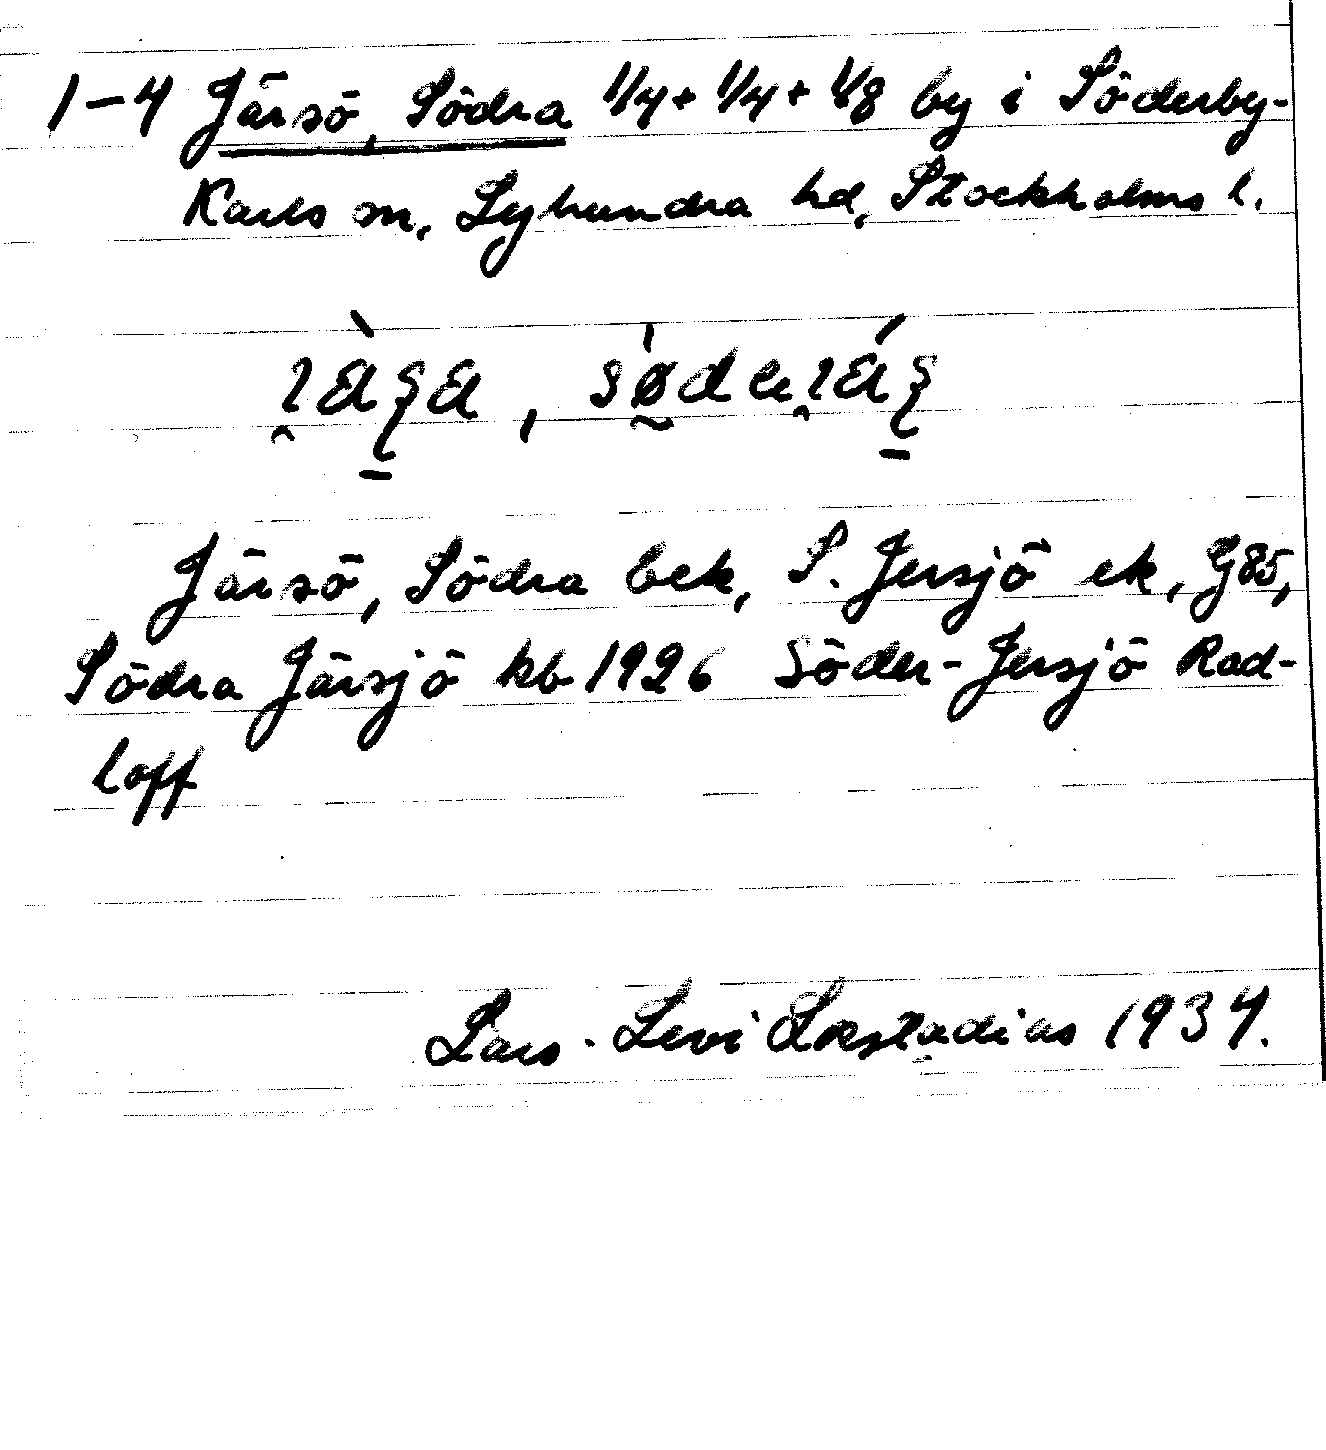 1-4 Järsö, Södra 1/4+ 1/4+ 1/8 by i Söderby-
Karls sn, Lyhundra hd, Stockholms l.
Järsö, Södra bek, S. Jersjö ek, G85,
Södra Järsjö kb 1926 Söder-Jersjö Rad-
loff
Lars-Levi Læstadius 1934.